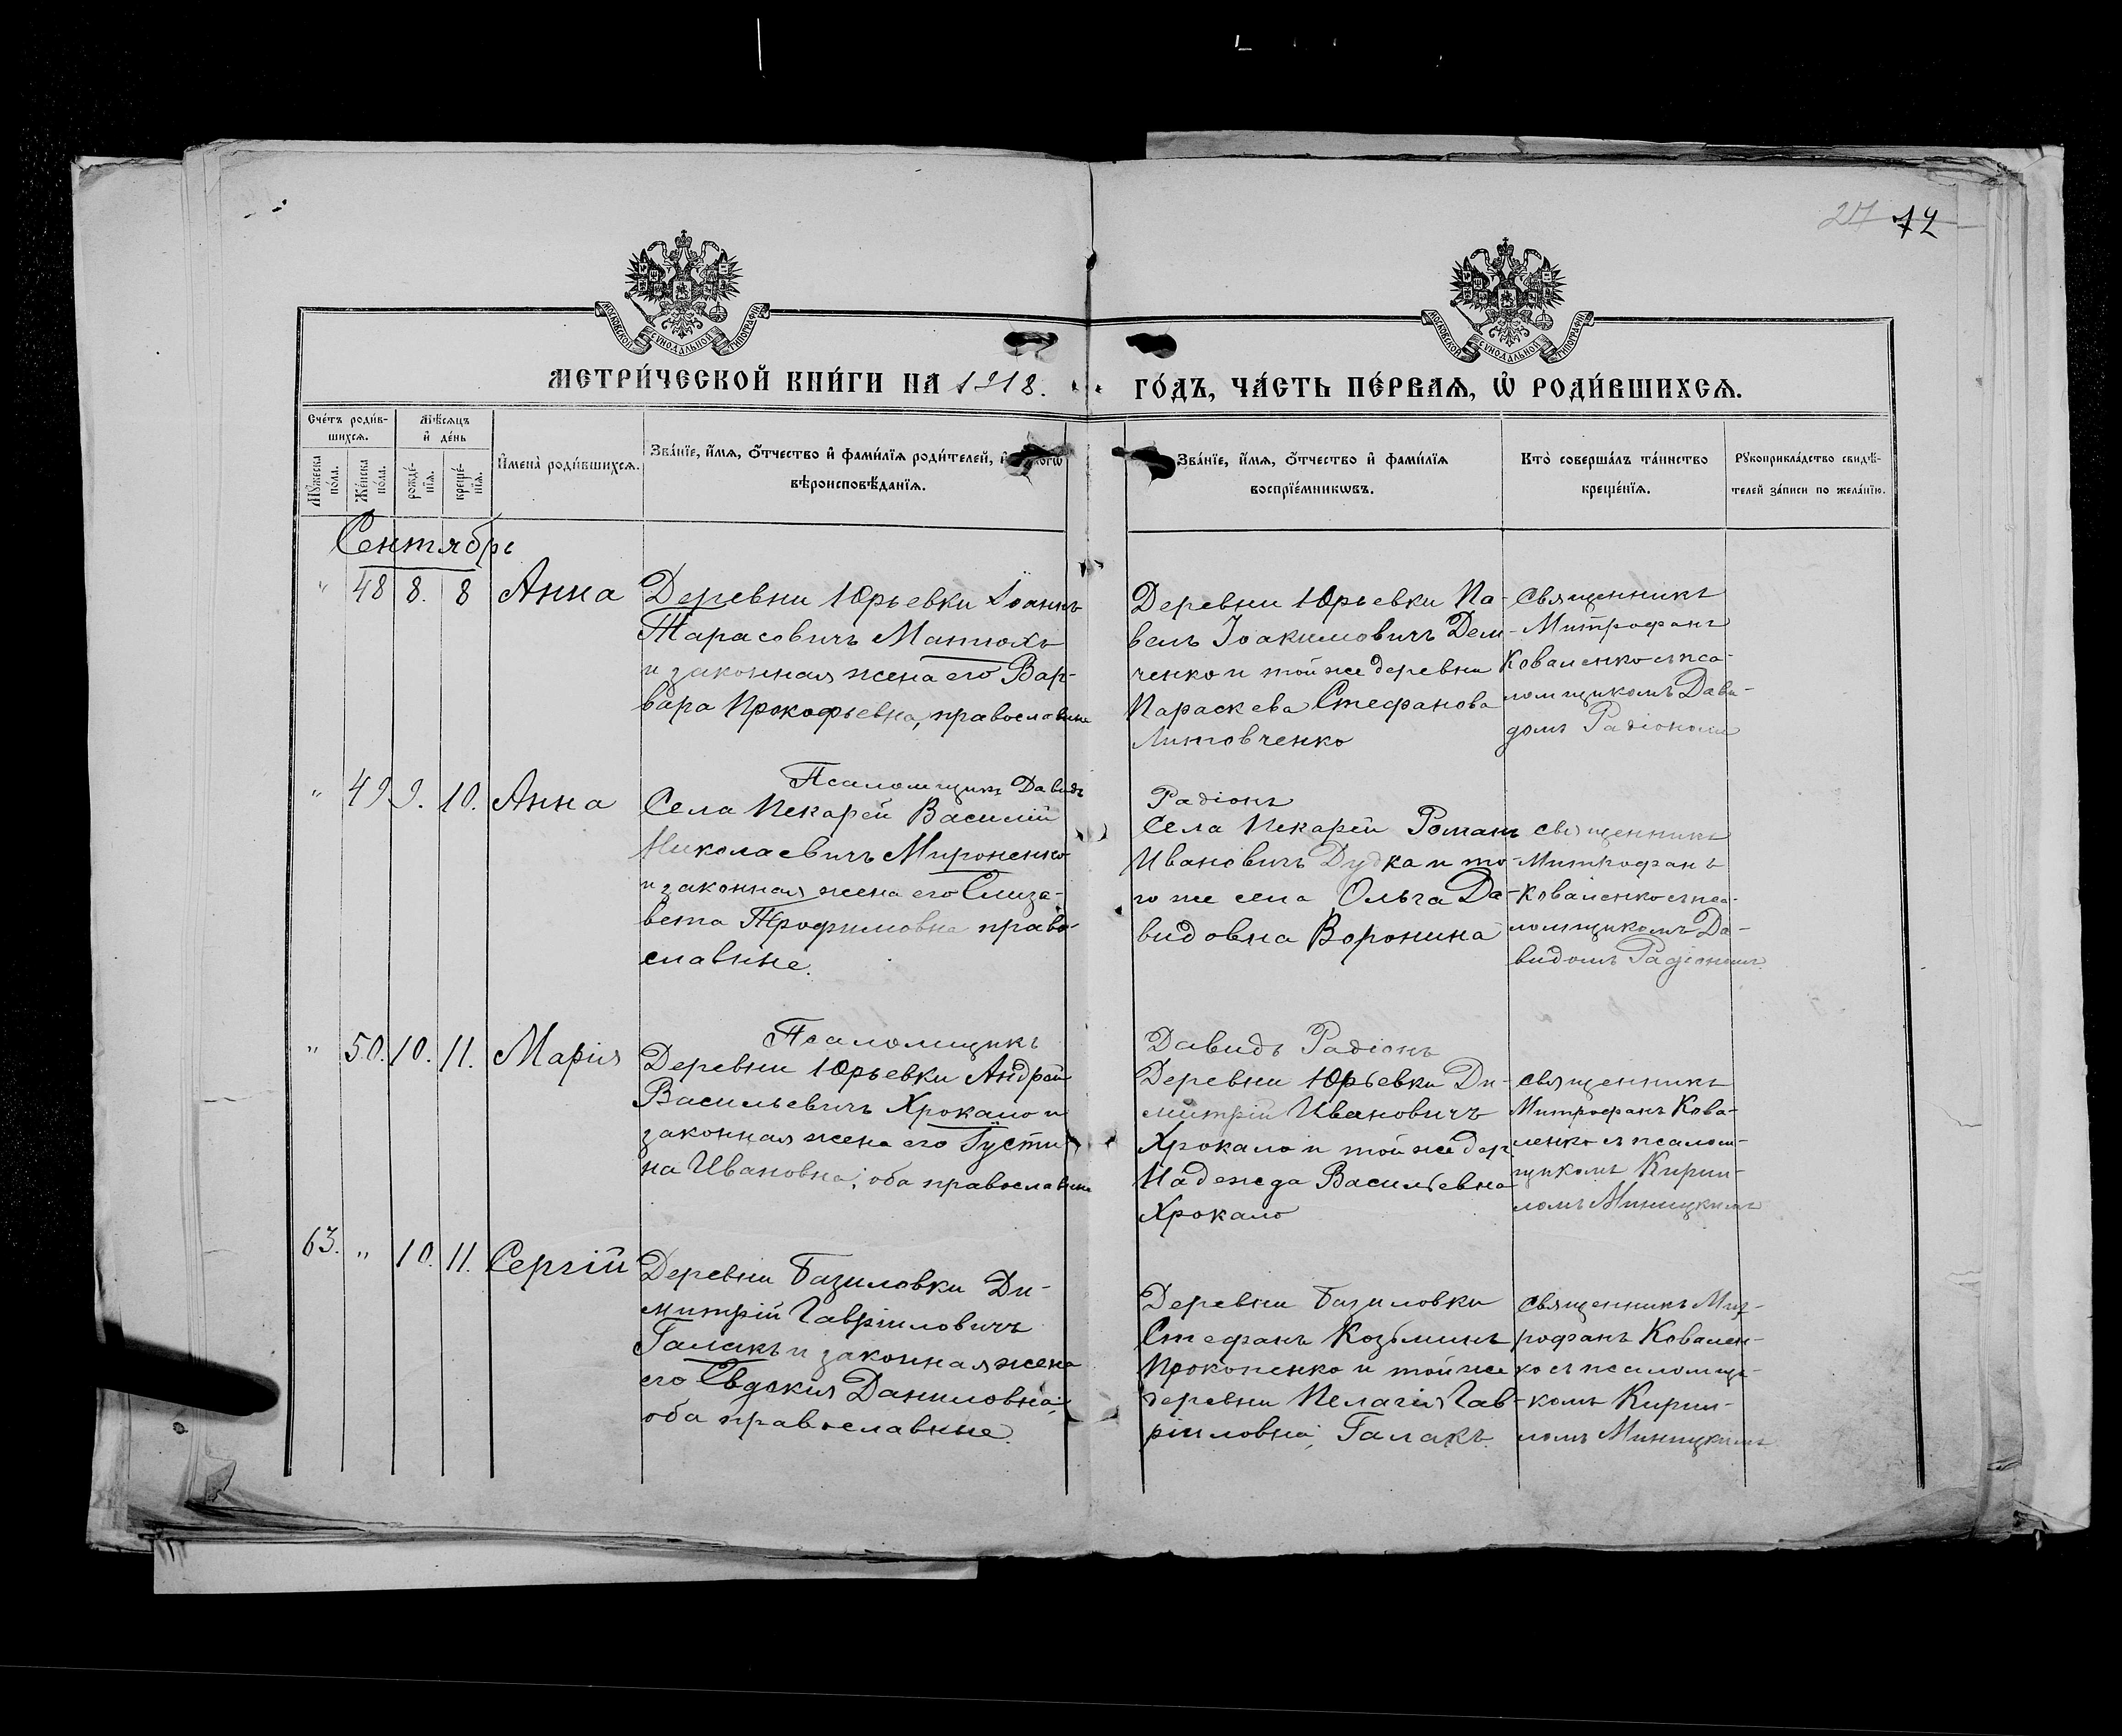 27 12
МОСКОВСКОЙ СУНОДАЛЬНОЙ ТИПОГРАФІИ
МОСКОВСКОЙ СУНОДАЛЬНОЙ ТИПОГРАФІИ
МЕТРИ́ЧЕСКОЙ КНИ́ГИ НА 1918.
ГО́ДЪ, ЧА́СТЬ ПЕ́РВАѦ, Ѡ РОДИ́ВШИХСѦ.
Сче́тъ роди́в-
шихсѧ.
Мѣ́сѧцъ
и҆ де́нь
Мꙋ́жеска
по́ла.
Же́нска
по́ла.
рожде́-
нїѧ.
креще́-
нїѧ.
И҆мена̀ роди́вшихсѧ.
Зва́нїе, и҆́мѧ, ѻ҆́тчество и҆ фами́лїѧ роди́телей, и҆
вѣроисповѣ́данїѧ.
Зва́нїе, и҆́мѧ, ѻ҆́тчество и҆ фами́лїѧ
воспрїе́мникѡвъ.
Кто̀ соверша́лъ та́инство
креще́нїѧ.
Рꙋкоприкла́дство свидѣ́-
телей за́писи по жела́нїю.
Сентябрь
" 48 8. 8 Анна
Деревни Юрьевки Іоаннъ
Тарасовичъ Матюхъ
и законная жена его Вар-
вара Прокофьевна, православные
Деревни Юрьевки Па-
велъ Іоакимовичъ Дем-
ченко и той же деревни
Параскева Стефанова
Литовченко
Священникъ
Митрофанъ
Коваленко съ пса-
ломщикомъ Дави-
домъ Радіономъ
Псаломщикъ Давидъ
Радіонъ
" 49 9. 10. Анна
Села Пекарей Василій
Николаевичъ Мироненко
и законная жена его Елиза-
вета Трофимовна право-
славные.
Села Пекарей Романъ
Ивановичъ Дудка и то-
го же села Ольга Да-
видовна Воронина
священникъ
Митрофанъ
Коваленко съ пса-
ломщикомъ Да-
видомъ Радіономъ.
Псаломщикъ
Давидъ Радіонъ
" 50. 10. 11. Марія
Деревни Юрьевки Андрей
Васильевичъ Хрокало и
законная жена его Густи-
на Ивановна, оба православные
Деревни Юрьевки Ди-
митрій Ивановичъ
Хрокало и той же дер.
Надежда Васильевна
Хрокало
священникъ
Митрофанъ Кова-
ленко съ псалом-
щикомъ Кирил-
ломъ Миницкимъ
63. " 10. 11. Сергій
Деревни Базиловки Ди-
митрій Гавріиловичъ
Галакъ и законная жена
его Евдокия Даниловна,
оба православные.
Деревни Базиловки
Стефанъ Козьминъ
Прокопенко и той же
деревни Пелагія Гав-
ріиловна, Галакъ.
священникъ Мит-
рофанъ Ковален-
ко съ псаломщи-
комъ Кирил-
ломъ Миницкимъ